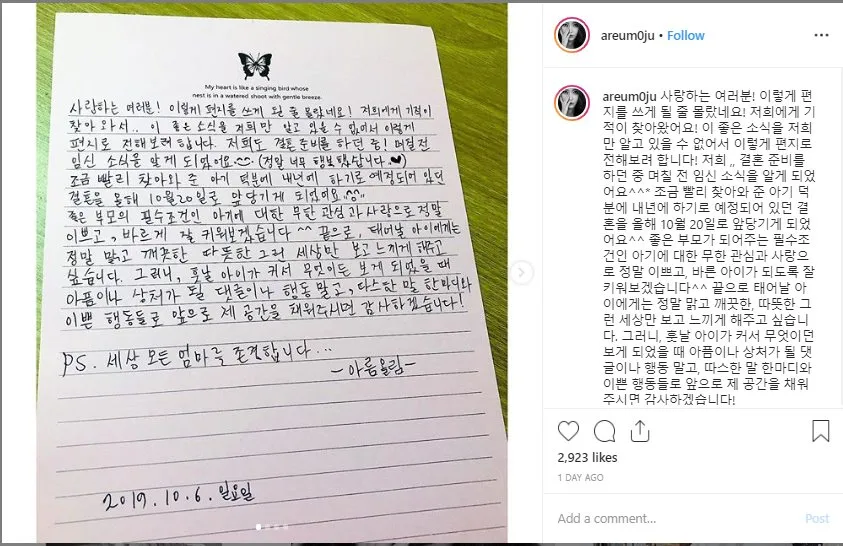 My heart is like a singing bird whose
nest is in a watered shoot with gentle breeze.
사랑하는 여러분! 이렇게 편지를 쓰게 될 줄 몰랐네요! 저희에게 기적이
찾아와서.. 이 좋은 소식을 저희만 알고 있을 수 없어서 이렇게
편지로 전해보려 합니다. 저희도 결혼준비를 하던 중! 며칠 전
임신 소식을 알게 되었어요^^. (정말 너무 행복했답니다.♥)
조금 빨리 찾아와 준 아기 덕분에 내년에 하기로 예정되어 있던
결혼을 올해 10월 20일로 앞당기게 되었어요^^
좋은 부모의 필수조건인 아기에 대한 무한 관심과 사랑으로 정말
이쁘고, 바르게 잘 키워보겠습니다^^ 끝으로, 태어날 아이에게는
정말 맑고 깨끗한 따뜻한 그런 세상만 보고 느끼게 해주고
싶습니다. 그러니, 훗날 아이가 커서 무엇이든 보게 되었을 때
아픔이나 상처가 될 댓글이나 행동 말고, 다스한 말 한마디와
이쁜 행동들로 앞으로 제 공간을 채워주시면 감사하겠습니다!
PS. 세상 모든 엄마를 존경합니다...
-아름올림-
2019.10.6.일요일
areum0ju • Follow
areum0ju 사랑하는 여러분! 이렇게 편
지를 쓰게 될 줄 몰랐네요! 저희에게 기
적이 찾아왔어요! 이 좋은 소식을 저희
만 알고 있을 수 없어서 이렇게 편지로
전해보려 합니다! 저희 ,, 결혼 준비를
하던 중 며칠 전 임신 소식을 알게 되었
어요^^* 조금 빨리 찾아와 준 아기 덕
분에 내년에 하기로 예정되어 있던 결
혼을 올해 10월 20일로 앞당기게 되었
어요^^ 좋은 부모가 되어주는 필수조
건인 아기에 대한 무한 관심과 사랑으
로 정말 이쁘고, 바른 아이가 되도록 잘
키워보겠습니다^^ 끝으로 태어날 아
이에게는 정말 맑고 깨끗한, 따뜻한 그
런 세상만 보고 느끼게 해주고 싶습니
다. 그러니, 훗날 아이가 커서 무엇이던
보게 되었을 때 아픔이나 상처가 될 댓
글이나 행동 말고, 따스한 말 한마디와
이쁜 행동들로 앞으로 제 공간을 채워
주시면 감사하겠습니다!
2,923 likes
1 DAY AGO
Add a comment... Post